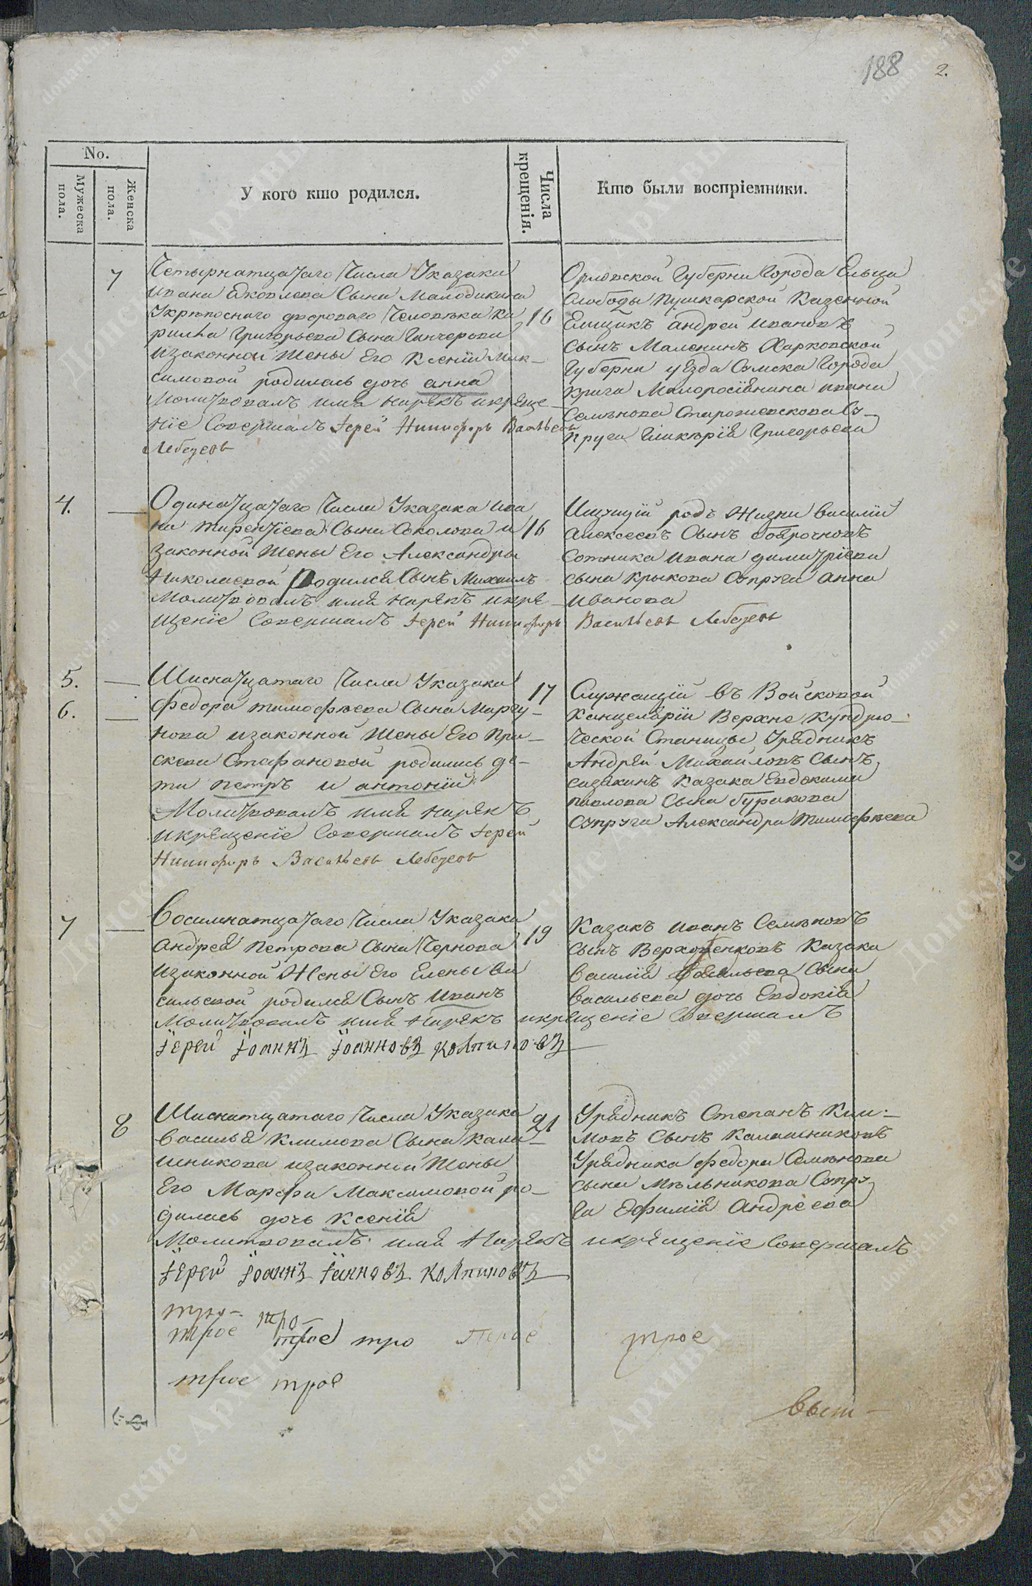 188 2.
No.
Мужеска пола.
Женска пола.
У кого кто родился.
Числа крещенія.
Кто были воспріемники.
7
Четырнатцатаго Числа Указака
ивана Яковлева Сына Малодикина
Укрѣпосного дворового Человѣка Ка
рильа Григорьева Сына Гончерова
изаконной Жены Его Ксеніи Мак-
симовой родилась дочь анна
Молитвовалъ имя нарекъ икреще
ніе Совершалъ Іерей Никифоръ Васильевъ
Лебедевъ
16
Орловской Губерни Города Ельца
Слободы Пушкарской Казенной
Емщикъ андрей ивановъ
Сынъ Маленинъ Харковской
Губерни уѣзда Сумска Города
Семѣнова
Гликѣрія Григорьева
4.
Одинатцатаго Числа Указака Ива
на тирентіева Сына Соколова и
Законной Жены Его Александры
Николаевой Родился Сынъ Михаилъ
Молитвовалъ имя нарекъ икре
щеніе Совершалъ Іерей Никифоръ Васильевъ Лебедевъ
16
Ищущій родъ Жизни василій
Алексеевъ Сынъ боярочновъ
Сотника Ивана димитріева
сына Крыкова Супруга анна
Иванова
5.
6.
Шиснатцатаго Числа Указака
Федора тимофѣева Сына Маргу-
нова изаконной Жены Его Пра-
скеви Стефановой родились де-
ти петръ и антоній
Молитвовалъ имя нарекъ
икрещеніе Совершалъ Іерей
Никифоръ Васильевъ Лебедевъ
17
Служащій въ Войсковой
Канцелярии Верхне Кундрю-
ческой Станицы Урядникъ
Андрей Михайловъ Сынъ
Казака Евдокима
павлова Сына буракова
Супруга Александра Тимофѣева
7
Восимнатцатаго Числа Указака
андрея петрова Сына Чернова
изаконной Жены Его Елены Ва
сильевой родился Сынъ Иванъ
Молитвовалъ имя Нарекъ икрещеніе Совершалъ
Іерей Іоаннъ Іоанновъ Колпиковъ
19
Казакъ иванъ Семѣновъ
сынъ Казака
василія Сына
васильева дочь Евдокія
8
Шиснатцатаго Числа Указака
василья Климова Сына Кала-
шникова изаконній Жены
Его Марфы Максимовой ро-
дилась дочь Ксенія
Молитвовалъ имя Нарекъ икрещеніе Совершалъ
Іерей Іоаннъ Іанновъ Колпиковъ
21
Урядникъ Степанъ Кли-
мовъ Сынъ Калашниковъ
Урядника федора Семѣнова
сына Мѣльникова Супру
га Ефимія Андреева
тро-
тро-
трое трое тро трое трое
трое трое